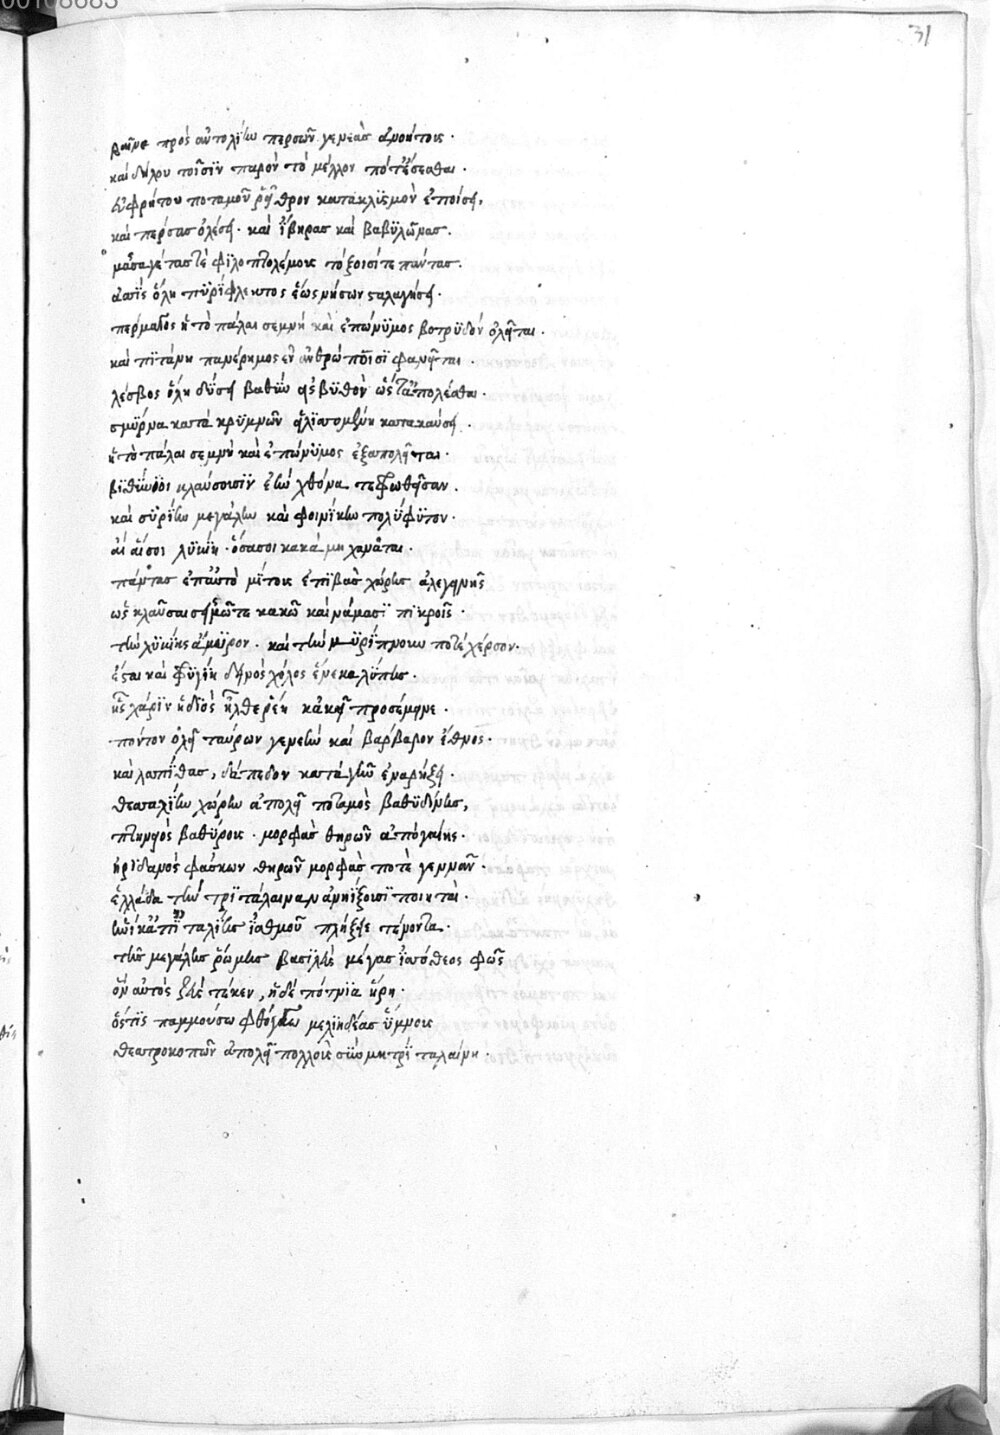 00108683
31
βαῖνε πρὸς ἀντολίην περσῶν γενεὰσ ἀνοήτοις.
καὶ δήλου τοῖσϊν παρὸν τὸ μέλλον ποτ' ἔσεσθαι.
ἐυφρήτου ποταμοῦ ῥεῖθρον κατακλϊσμὸν ἐποίσει,
καὶ πέρσασ ὀλέσει. καὶ ἴβηρασ καὶ βαβϋλῶνασ.
μασσαγέτασ τὲ φϊλοπτολέμοις τόξοισί τε πάντασ.
ἀσὶς ὅλη πϋρίφλεκτος ἕως νήσων σταλαγήσει.
πέρμαδος ἡ τὸ πάλαι σεμνὴ καὶ ἐπώνϋμος βοτρϋδὸν ὀλεῖται.
καὶ πϊτάνη πανέρημος ἐν ἀνθρώποισϊ φανεῖται.
λέσβος ὅλη δύσει βαθὺν εἰς βϋθὸν ὥστ' ἀπολέσθαι.
σμϋρνα κατὰ κρϋμνῶν εἱλϊσσομένη κατακαύσει.
ἡ τὸ πάλαι σεμνὴ καὶ ἐπώνϋμος ἐξαπολεῖται.
βϊθϋνοὶ κλαύσουσϊν ἑὴν χθόνα τεφρωθεῖσαν.
καὶ σϋρίην μεγάλην καὶ φοινίκην πολύφϋτον.
αἶ αἶ σοι λϋκίη. ὅσα σοι κακὰ μηχανᾶται.
πόντοσ ἐπ' αὐτομάτοις ἐπϊβὰσ χώρησ ἀλεγεινῆς
ὡς κλαῦσαι σεισμῶτε κακῶ καὶ νάμασϊ πικροῖς.
τὴν λϋκίης ἄμϋρον. καὶ τὴν μϋρίπνουν ποτὲ χέρσον.
ἔσται καὶ φρϋγίη δεινὸς χόλος εἵνεκα λύπησ.
ἧς χάρϊν ἡ διὸς ἦλθε ῥέη κἀκεῖ προσέμεινε.
πόντον ὀλεῖ ταύρων γενεὴν καὶ βάρβαρον ἔθνος.
καὶ λαπίθασ, δάπεδον κατὰ γῆν ἐναρίξει.
θεσσαλίην χώρην ἀπολεῖ ποταμὸς βαθϋδίνησ,
πηνειὸς βαθύροις. μορφὰσ θηρῶν ἀπὸ γαίης.
ἠρϊδανὸς φάσκων θηρῶν μορφὰσ ποτὲ γεννᾶν.
ἑλλάδα τὴν τρϊτάλαιναν ἀνηΐξουσι ποιηταί.
ἡνίκ' ἀπ' ϊταλίησ ἰσθμοῦ πλήξειε τένοντα.
τῆς μεγάλησ ῥώμησ βασϊλεὺς μέγασ ἰσόθεος φῶς
ὃν αὐτὸς ζεὺς τέκεν, ἠδὲ πότνϊα ἥρη.
ὅστϊς παμμούσω φθόγγω μελϊηδέασ ὕμνοις
θεατροκοπῶν ἀπολεῖ πολλοὺς σὺν μητρῒ ταλαίνη.